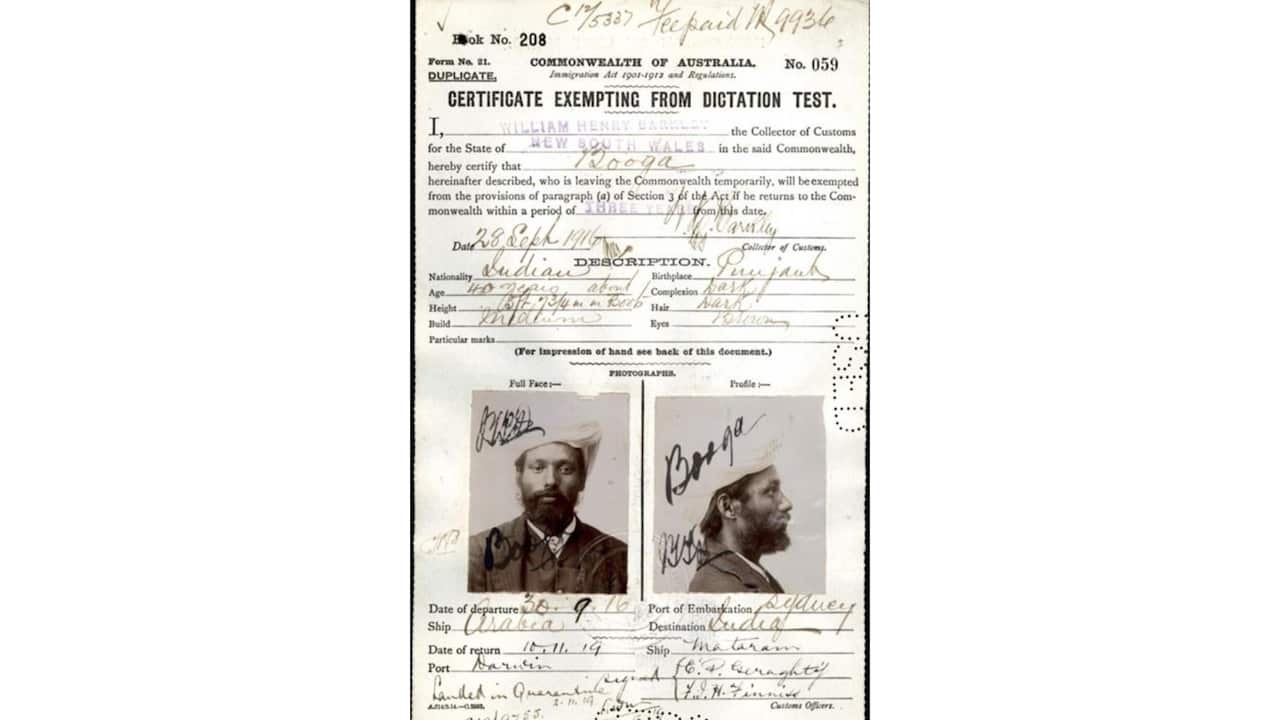 C 17/5337 Feepaid 9936
Book No. 208
Form No. 21.
COMMONWEALTH OF AUSTRALIA.
No. 059
DUPLICATE.
Immigration Act 1901-1912 and Regulations.
CERTIFICATE EXEMPTING FROM DICTATION TEST.
I, WILLIAM HENRY BARKLEY the Collector of Customs
for the State of NEW SOUTH WALES in the said Commonwealth,
hereby certify that Booga
hereinafter described, who is leaving the Commonwealth temporarily, will be exempted
from the provisions of paragraph (a) of Section 3 of the Act if he returns to the Com-
monwealth within a period of THREE YEARS from this date.
W. H. Barkley
Date 28 Sept 1916
Collector of Customs.
DESCRIPTION.
Nationality Indian Birthplace Punjaub
Age 40 years about Complexion Dark
Height 5ft 7 3/4 in in Boots Hair Dark
Build Medium Eyes Brown
Particular marks
(For impression of hand see back of this document.)
PHOTOGRAPHS.
Full Face:— Profile:—
Booga
Booga
Date of departure 30.9.16 Port of Embarkation Sydney
Ship Arabia Destination India
Date of return 10.11.19 Ship Mataram
Port Darwin
signed
C. P. Geraghty
F. J. H. Finniss
Landed in Quarantine
2.11.19
Customs Officers.